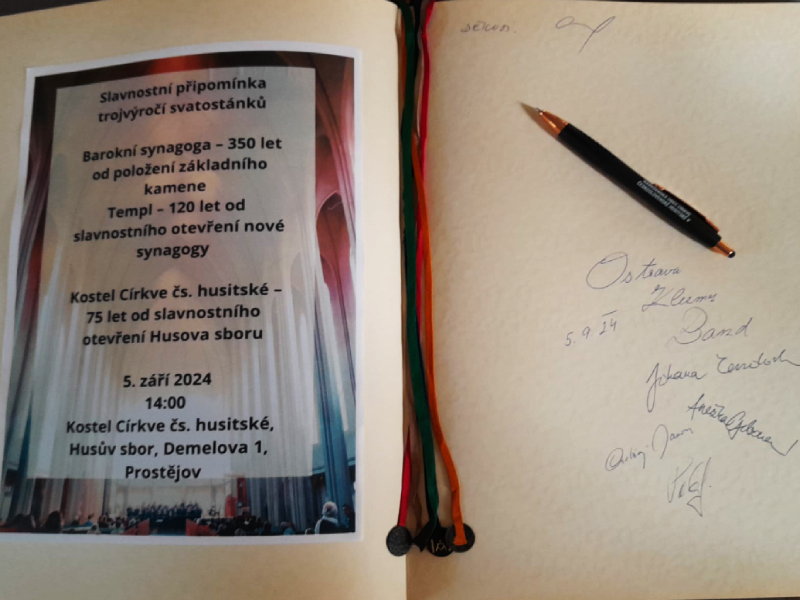 Slavnostní připomínka
trojvýročí svatostánků
Barokní synagoga – 350 let
od položení základního
kamene
Templ – 120 let od
slavnostního otevření nové
synagogy
Kostel Církve čs. husitské –
75 let od slavnostního
otevření Husova sboru
5. září 2024
14:00
Kostel Církve čs. husitské,
Husův sbor, Demelova 1,
Prostějov
Ostrava
Klezmer
5. 9. 24
Band
Johana